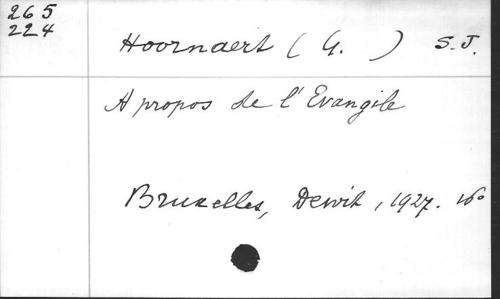 265
224
Hoornaert ( G. ) S.J.
A propos de l'Evangile
Bruxelles, Dewit, 1927. 16°